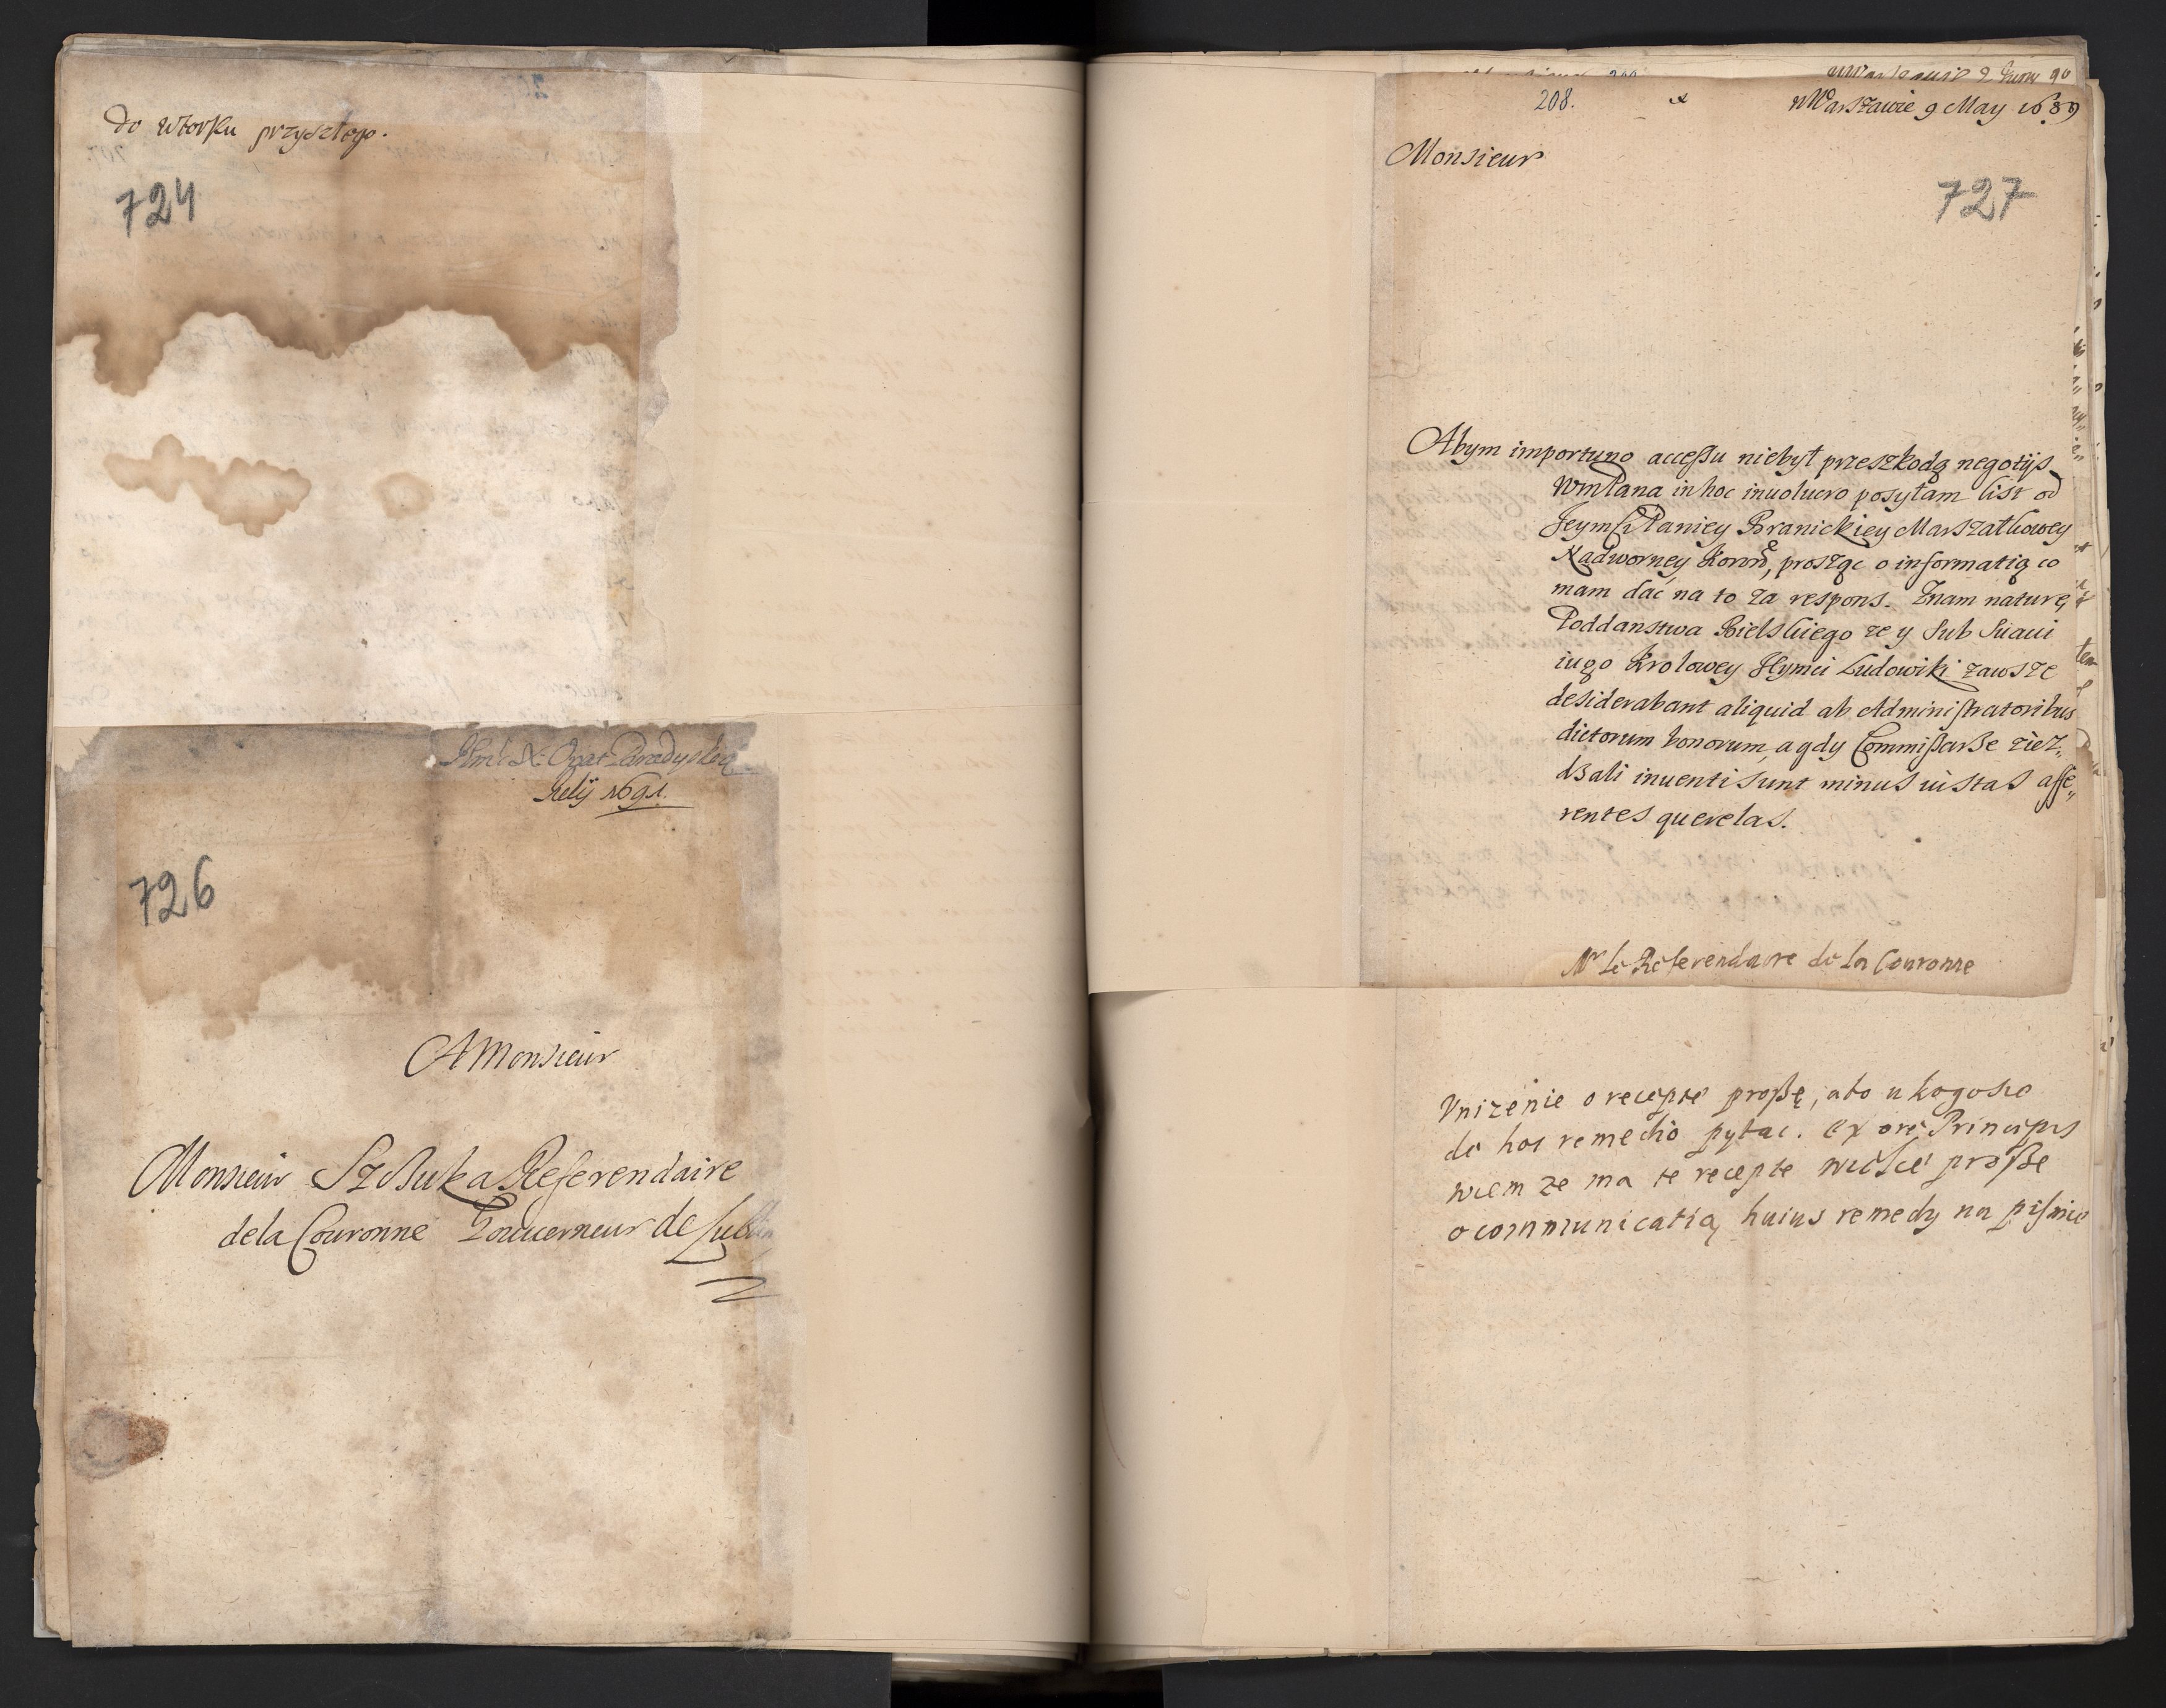 do wtorku przyszłego.
724
Relij 1691.
726
A Monsieur
Monsieur Szczuka Referendaire
de la Couronne Gouuerneur de Lublin
208.
w Warszawie 9 May 1689
Monsieur
727
Abym importuno accessu niebył przeszkodą negotijs
WmPana in hoc inuolucro posyłam list od
Jeym Paniey Branickiey Marszałkowey
Nadworney Koronne, prosząc o informatią co
mam dać na to za respons. Znam naturę
Poddanstwa Bielskiego ze y sub suaui
iugo Krolowey Jeymci Ludowiki zawsze
desiderabant aliquid ab Administratoribus
dictorum bonorum, a gdy Commissarze ziez„
dzali inuenti sunt minus iustas affe„
rentes querelas.
Mr le Referendaire de la Couronne
Vnizenie o recepte proszę, abo u kogo
de hoc remedio pytac. ex ore Principis
wiem ze ma te recepte proszę
o communicatią huius remedy na pismie